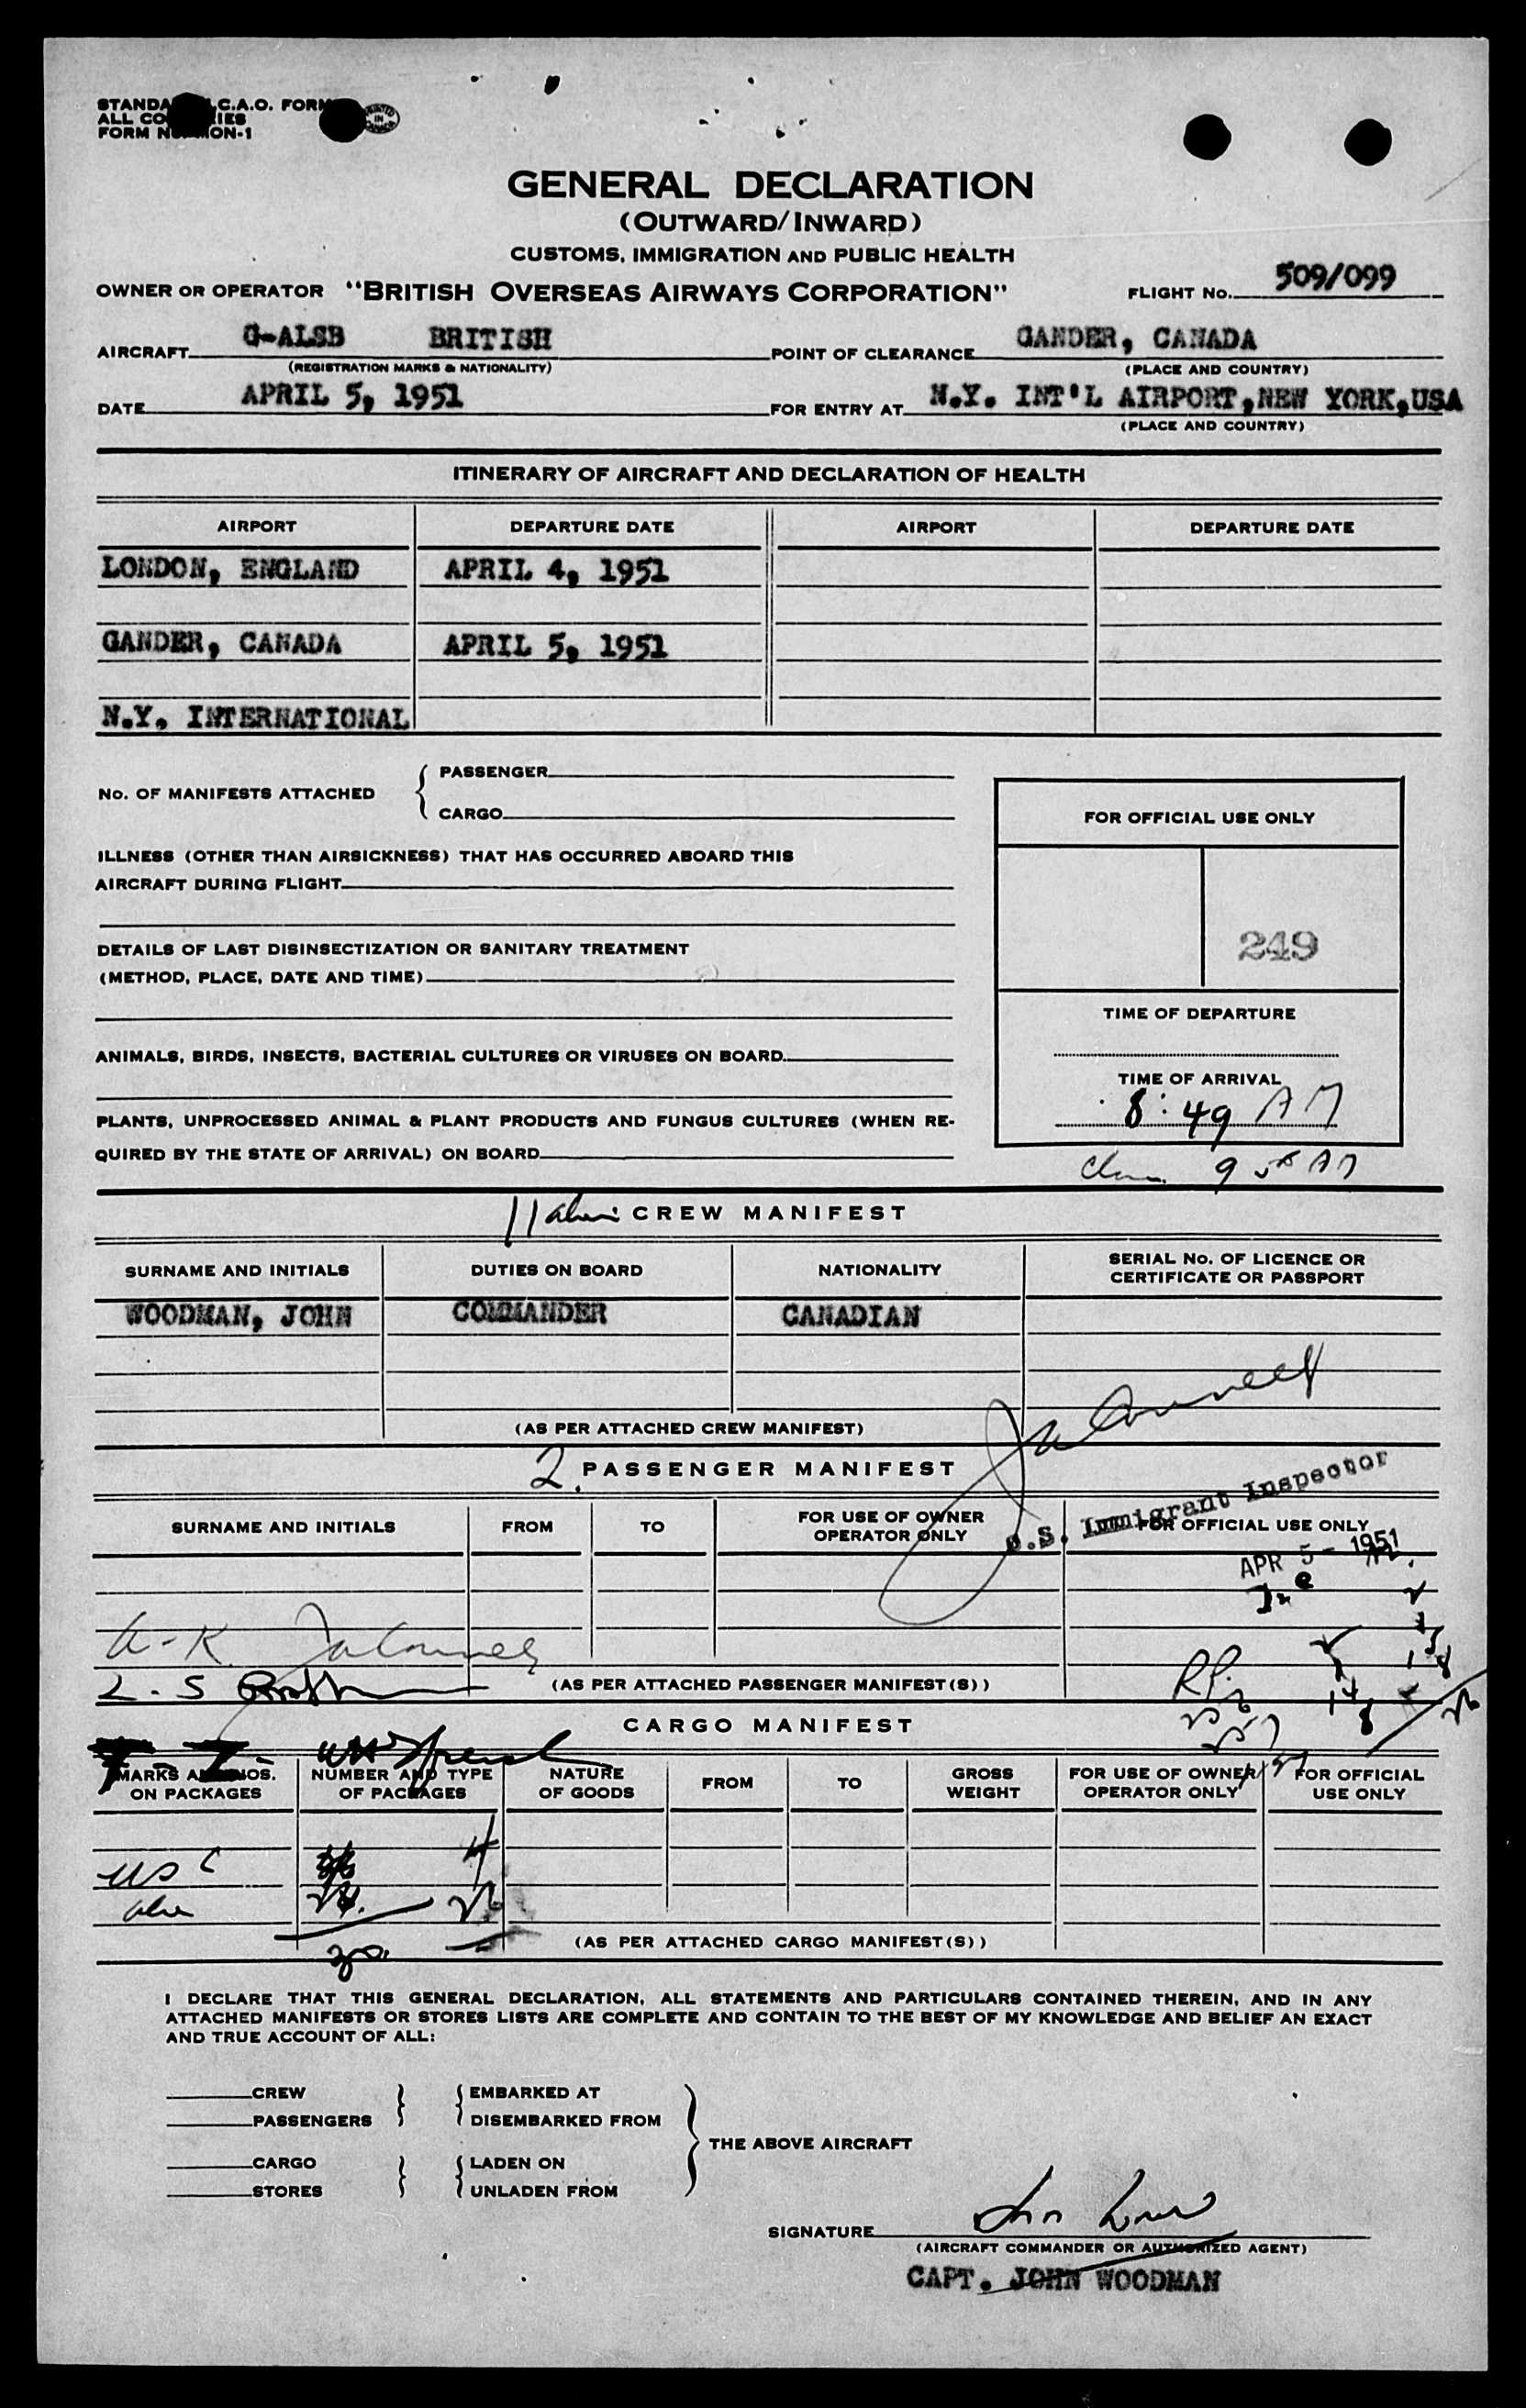 C.A.O. FORM
ALL
FORM ON-1
PRINTED IN CANADA
GENERAL DECLARATION
(OUTWARD/INWARD)
CUSTOMS, IMMIGRATION AND PUBLIC HEALTH
OWNER OR OPERATOR "BRITISH OVERSEAS AIRWAYS CORPORATION" FLIGHT No. 509/099
AIRCRAFT G-ALSB BRITISH POINT OF CLEARANCE GANDER, CANADA
(REGISTRATION MARKS & NATIONALITY) (PLACE AND COUNTRY)
DATE APRIL 5, 1951 FOR ENTRY AT N.Y. INT'L AIRPORT,NEW YORK,USA
(PLACE AND COUNTRY)
ITINERARY OF AIRCRAFT AND DECLARATION OF HEALTH
AIRPORT DEPARTURE DATE AIRPORT DEPARTURE DATE
LONDON, ENGLAND APRIL 4, 1951
GANDER, CANADA APRIL 5, 1951
N.Y. INTERNATIONAL
No. OF MANIFESTS ATTACHED { PASSENGER
CARGO
FOR OFFICIAL USE ONLY
ILLNESS (OTHER THAN AIRSICKNESS) THAT HAS OCCURRED ABOARD THIS
AIRCRAFT DURING FLIGHT
249
DETAILS OF LAST DISINSECTIZATION OR SANITARY TREATMENT
(METHOD, PLACE, DATE AND TIME)
TIME OF DEPARTURE
ANIMALS, BIRDS, INSECTS, BACTERIAL CULTURES OR VIRUSES ON BOARD
TIME OF ARRIVAL
8:49 AM
PLANTS, UNPROCESSED ANIMAL & PLANT PRODUCTS AND FUNGUS CULTURES (WHEN RE-
QUIRED BY THE STATE OF ARRIVAL) ON BOARD
11 CREW MANIFEST
SURNAME AND INITIALS DUTIES ON BOARD NATIONALITY SERIAL No. OF LICENCE OR
CERTIFICATE OR PASSPORT
WOODMAN, JOHN COMMANDER CANADIAN
(AS PER ATTACHED CREW MANIFEST)
2. PASSENGER MANIFEST
U.S. Immigrant Inspector
SURNAME AND INITIALS FROM TO FOR USE OF OWNER
OPERATOR ONLY FOR OFFICIAL USE ONLY
APR 5 - 1951
(AS PER ATTACHED PASSENGER MANIFEST(S))
CARGO MANIFEST
MARKS AND NOS.
ON PACKAGES NUMBER AND TYPE
OF PACKAGES NATURE
OF GOODS FROM TO GROSS
WEIGHT FOR USE OF OWNER
OPERATOR ONLY FOR OFFICIAL
USE ONLY
USC
(AS PER ATTACHED CARGO MANIFEST(S))
I DECLARE THAT THIS GENERAL DECLARATION, ALL STATEMENTS AND PARTICULARS CONTAINED THEREIN, AND IN ANY
ATTACHED MANIFESTS OR STORES LISTS ARE COMPLETE AND CONTAIN TO THE BEST OF MY KNOWLEDGE AND BELIEF AN EXACT
AND TRUE ACCOUNT OF ALL:
CREW EMBARKED AT
PASSENGERS DISEMBARKED FROM
THE ABOVE AIRCRAFT
CARGO LADEN ON
STORES UNLADEN FROM
SIGNATURE
(AIRCRAFT COMMANDER OR AUTHORIZED AGENT)
CAPT. JOHN WOODMAN